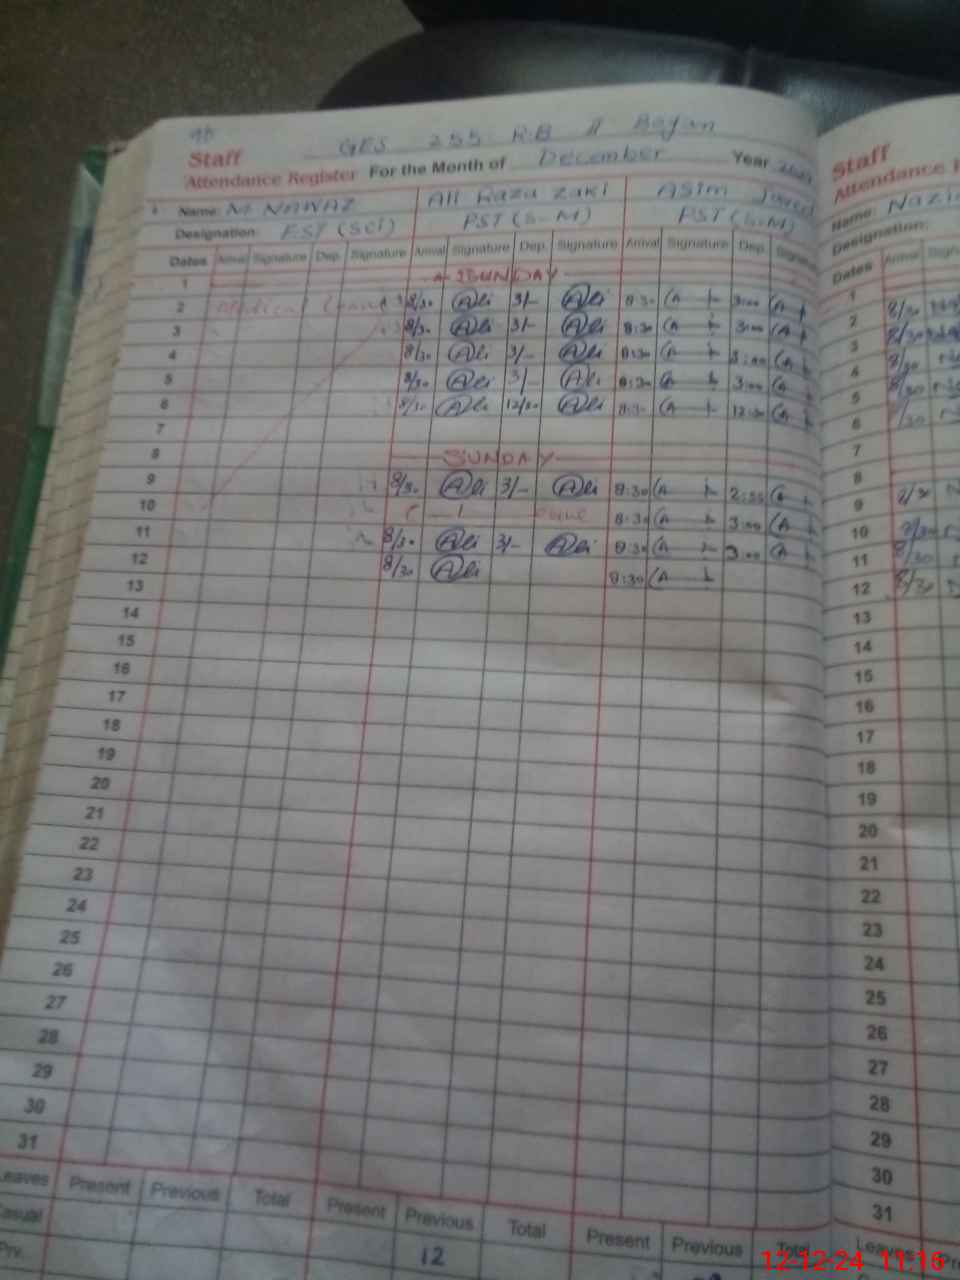 GES 255 R.B II Bogan
Staff
Attendance Register For the Month of December Year
Name: M. NAWAZ Ali Raza Zaki Asim Javed
Designation: EST (SCI) PST (S-M) PST (S.M)
Dates Arrival Signature Dep. Signature Arrival Signature Dep. Signature Arrival Signature Dep. Signature
1 SUNDAY
2 Medical Leave 8/30 Ali 3/- Ali 8:30 3:00
3 8/30 Ali 3/- Ali 8:30 3:00
4 8/30 Ali 3/- Ali 8:30 3:00
5 8/30 Ali 3/- Ali 8:30 3:00
6 8/30 Ali 12/30 Ali 8:30 12:30
7
8 SUNDAY
9 8/30 Ali 3/- Ali 8:30
10 8:30 3:00
11 8/30 Ali 3/- Ali 8:30 3:00
12 8/30 Ali 8:30
13
14
15
16
17
18
19
20
21
22
23
24
25
26
27
28
29
30
31
Leaves Present Previous Total Present Previous Total Present Previous Total
Casual 12
Prv.
Staff
Attendance
Name:
Designation:
Dates Arrival
1
2 8/30
3 8/30
4 8/30
5 8/30
6 8/30
7
8
9 8/30
10 8/30
11 8/30
12 8/30
13
14
15
16
17
18
19
20
21
22
23
24
25
26
27
28
29
30
31
Leaves
12-12-24 11:16